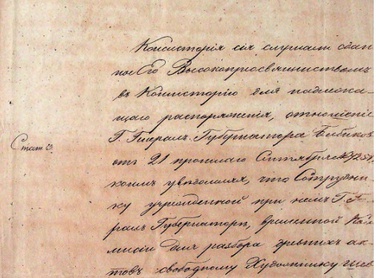 Консисторія сія слушали сдан
ное Его Высокопреосвященствомъ
въ Консисторію для надлежа
щаго распоряженія, отношеніе
Г. Генералъ-Губернатора Бибикова
отъ 21 прошлаго Сентября №
коимъ увѣдомляя, что Сотрудни
ку учрежденной при немъ Гене
ралъ Губернаторѣ, временной Ком
мисіи для разбора древнихъ ак
товъ свободному Художнику